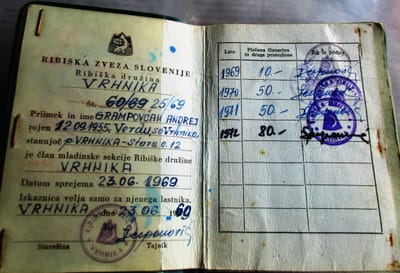 RIBIŠKA ZVEZA SLOVENIJE
Ribiška družina
VRHNIKA
Št. 60/69 25/69
Priimek in ime GRAMPOVČAN ANDREJ
rojen 12.09.1955, Verd, s.o. Vrhnika
stanujoč p. VRHNIKA - stara c. 12
je član mladinske sekcije Ribiške družine
VRHNIKA
Datum sprejema 23.06.1969.
Izkaznica velja samo za njenega lastnika.
VRHNIKA dne 23.06. 1969
Starešina Tajnik
Leto Plačana članarina in druge pristojbine Žig in podpis
1969 10.-
1970 50.-
1971 50.-
1972 80.-